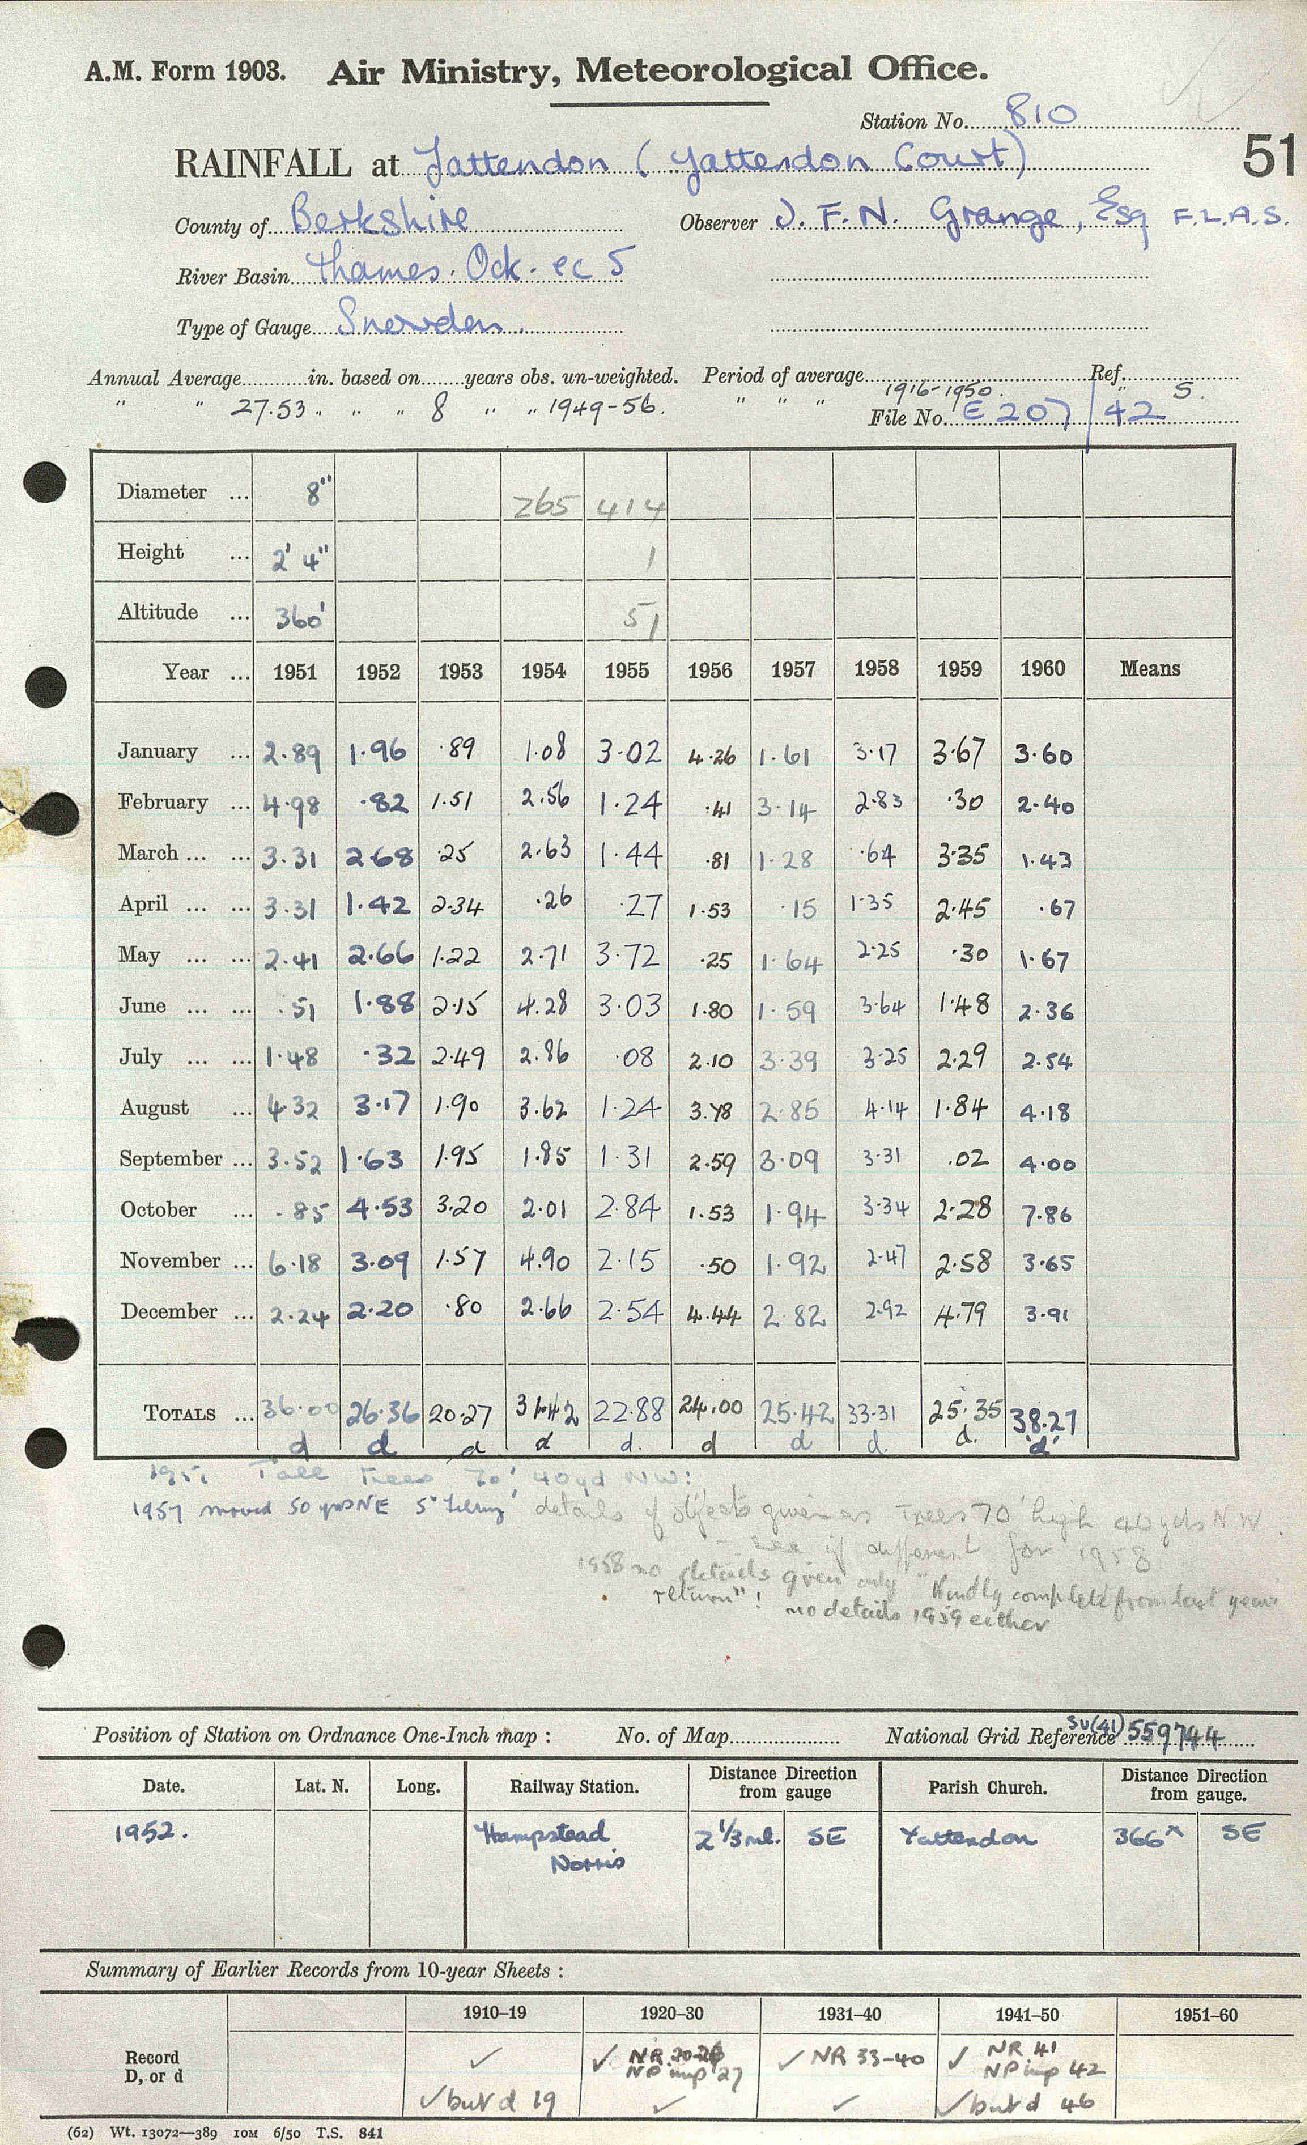 A.M. Form 1903. Air Ministry, Meteorological Office.
Station No. 810
51
RAINFALL at Yattendon (Yattendon Court)
County of Berkshire Observer J. F. N. Grange, Esq F.L.A.S.
River Basin Thames. Ock. ec 5
Type of Gauge Snowdon.
Annual Average in. based on years obs. un-weighted. Period of average 1916-1950. Ref. S.
" " 27.53 " " " 8 " " 1949-56. " " " File No. E 207/42
Diameter ... 8" 265 414
Height ... 2' 4" 1
Altitude ... 360' 51
Year ... 1951 1952 1953 1954 1955 1956 1957 1958 1959 1960 Means
January ... 2.89 1.96 .89 1.08 3.02 4.26 1.61 3.17 3.67 3.60
February ... 4.98 .82 1.51 2.56 1.24 .41 3.14 2.83 .30 2.40
March ... ... 3.31 2.68 .25 2.63 1.44 .81 1.28 .64 3.35 1.43
April ... ... 3.31 1.42 2.34 .26 .27 1.53 .15 1.35 2.45 .67
May ... ... 2.41 2.66 1.22 2.71 3.72 .25 1.64 2.25 .30 1.67
June ... ... .51 1.88 2.15 4.28 3.03 1.80 1.59 3.64 1.48 2.36
July ... ... 1.48 .32 2.49 2.86 .08 2.10 3.39 3.25 2.29 2.54
August ... 4.32 3.17 1.90 3.62 1.24 3.78 2.85 4.14 1.84 4.18
September ... 3.52 1.63 1.95 1.85 1.31 2.59 3.09 3.31 .02 4.00
October ... .85 4.53 3.20 2.01 2.84 1.53 1.94 3.34 2.28 7.86
November ... 6.18 3.09 1.57 4.90 2.15 .50 1.92 2.47 2.58 3.65
December ... 2.24 2.20 .80 2.66 2.54 4.44 2.82 2.92 4.79 3.91
TOTALS ... 36.00 26.36 20.27 31.42 22.88 24.00 25.42 33.31 25.35 38.27
d d d d d. d d d. d. d
1951 Tall trees 70' 40yd NW:
1957 moved 50 yds NE 5" details of objects given as Trees 70' high 40 yds N W.
- see if different for 1958
1958 no details given only "Kindly complete from last years
return"! no details 1959 either
Position of Station on Ordnance One-Inch map : No. of Map National Grid Reference SU(41) 559744
Date. Lat. N. Long. Railway Station. Distance Direction from gauge Parish Church. Distance Direction from gauge.
1952. Hampstead Norris 2 1/3 ml. SE Yattendon 366x SE
Summary of Earlier Records from 10-year Sheets :
1910-19 1920-30 1931-40 1941-50 1951-60
Record ✓ ✓ NR 20-26 ✓ NR 33-40 ✓ NR 41
D, or d NP imp 27 NP imp 42
✓ but d 19 ✓ ✓ ✓ but d 46
(62) Wt. 13072—389 10M 6/50 T.S. 841